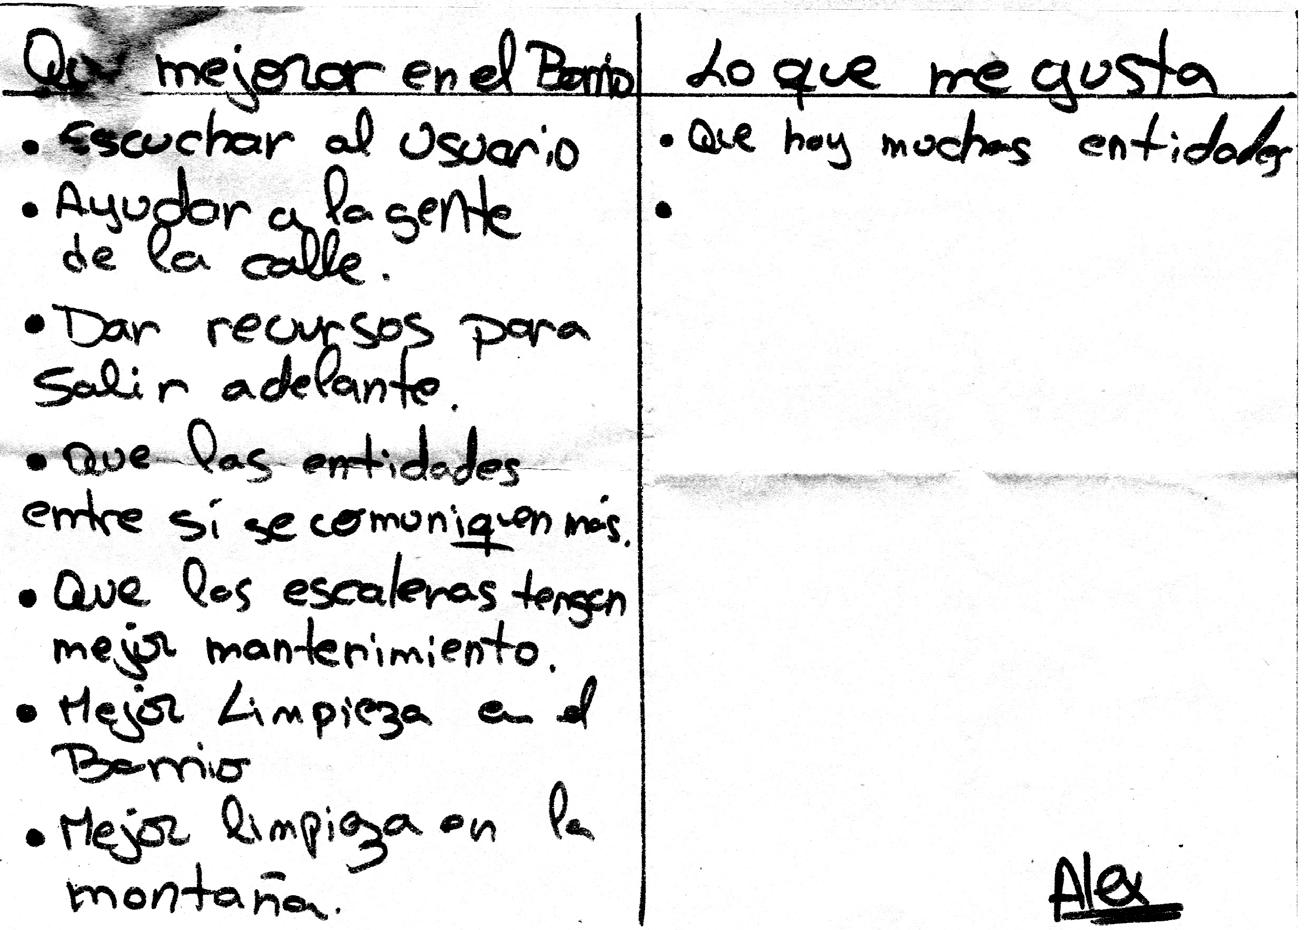 Qu mejorar en el Barrio
• Escuchar al usuario
• Ayudar a la gente
de la calle.
• Dar recursos para
Salir adelante.
• Que las entidades
entre sí se comuniquen más.
• Que las escaleras tengan
mejor mantenimiento.
• Mejor Limpieza en el
Barrio
• Mejor limpieza en la
montaña.
Lo que me gusta
• Que hay muchas entidades
•
Alex